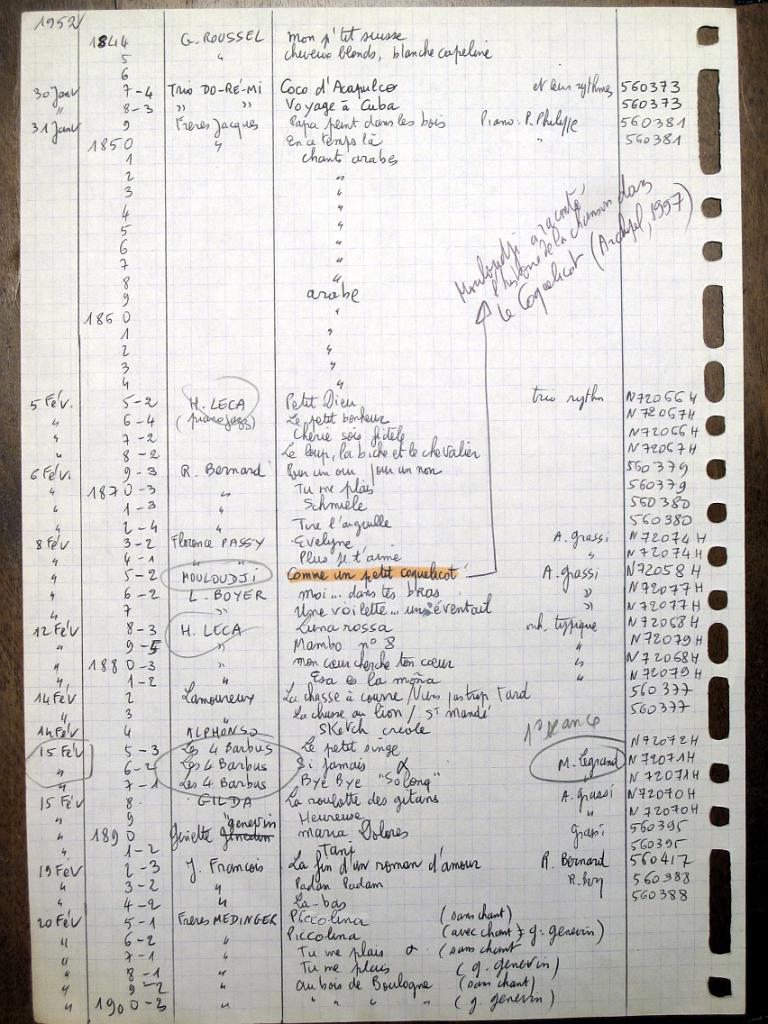 1952
1844 G. ROUSSEL mon p'tit suisse
5 " cheveux blonds, blanche capeline
6
30 Janv 7-4 Trio DO-RÉ-MI Coco d'Acapulco et leurs rythmes 560373
" 8-3 " " Voyage à Cuba 560373
31 Janv 9 Freres Jacques Papa peint dans les bois Piano: P. Philippe 560381
1850 " En ce temps là " 560381
1 chant arabes
2 "
3 "
4 "
5 "
6 "
7 "
8 "
9 arabe
1860 "
1 "
2 "
3 "
4 "
Mouloudji a raconté
l'histoire de la chanson dans
Le Coquelicot (Archipel, 1997)
5 Fév. 5-2 H. LECA Petit Dieu trio rythm N72066H
" 6-4 (piano jazz) Le petit bonheur N72067H
" 7-2 Cherie sois fidèle N72066H
" 8-2 Le loup, la biche et le chevalier N72067H
6 Fév. 9-3 R. Bernard Pour un oui pour un non 560379
" 1870-3 " Tu me plais 560379
" 1-3 " Schmiele 560380
" 2-4 " Tire l'aiguille 560380
8 Fév 3-2 Florence PASSY Evelyne A. grassi N72074H
" 4-1 " " Plus je t'aime " N72074H
" 5-2 MOULOUDJI Comme un petit coquelicot A. grassi N72058H
" 6-2 L. BOYER moi... dans tes bras " N72077H
" 7 " Une voilette... un éventail " N72077H
12 Fév 8-3 H. LECA Luna rossa orch. typique N72068H
" 9-5 " Mambo n° 8 " N72079H
" 1880-3 " mon cœur cherche ton cœur " N72068H
" 1-2 " Esa es la moña " N72079H
14 Fév 2 Lamoureux La chasse à courre / Vers jastrop Tard 560377
" 3 La chasse au lion / St mandé 560377
14 Fév 4 ALPHANSO Sketch creole
1° seance
15 Fév 5-3 Les 4 Barbus Le petit singe N72072H
" 6-2 Les 4 Barbus Si jamais M. Legrand N72071H
" 7-1 Les 4 Barbus Bye Bye "So long" " N72071H
15 Fév 8. GILDA La roulotte des gitans A. grassi N72070H
" 9 " Heureuse N72070H
" 1890 Ginette genevin maria Dolores grassi 560395
" 1-2 Tani 560395
19 Fév 2-3 J. Francois La fin d'un roman d'amour R. Bernard 560417
" 3-2 " Padam Padam R. Ber 560388
" 4-2 " La-bas 560388
20 Fév 5-1 Freres MEDINGER Piccolina (sans chant)
" 6-2 " Piccolina (avec chant g. genevin)
" 7-1 " Tu me plais (sans chant
" 8-1 " Tu me plais (g. genevin)
" 9-2 " au bois de Boulogne (sans chant)
" 1900-3 " " " " " (g. genevin)